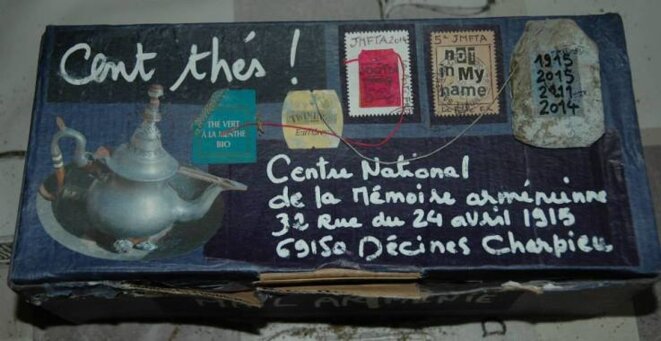 Cent thés !
JMFTA 2014
5e JMFTA
not
in My
name
1915
2015
2014
THE VERT
À LA MENTHE
BIO
TWININGS
Centre National
de la Mémoire arménienne
32 Rue du 24 avril 1915
69150 Décines Charpieu